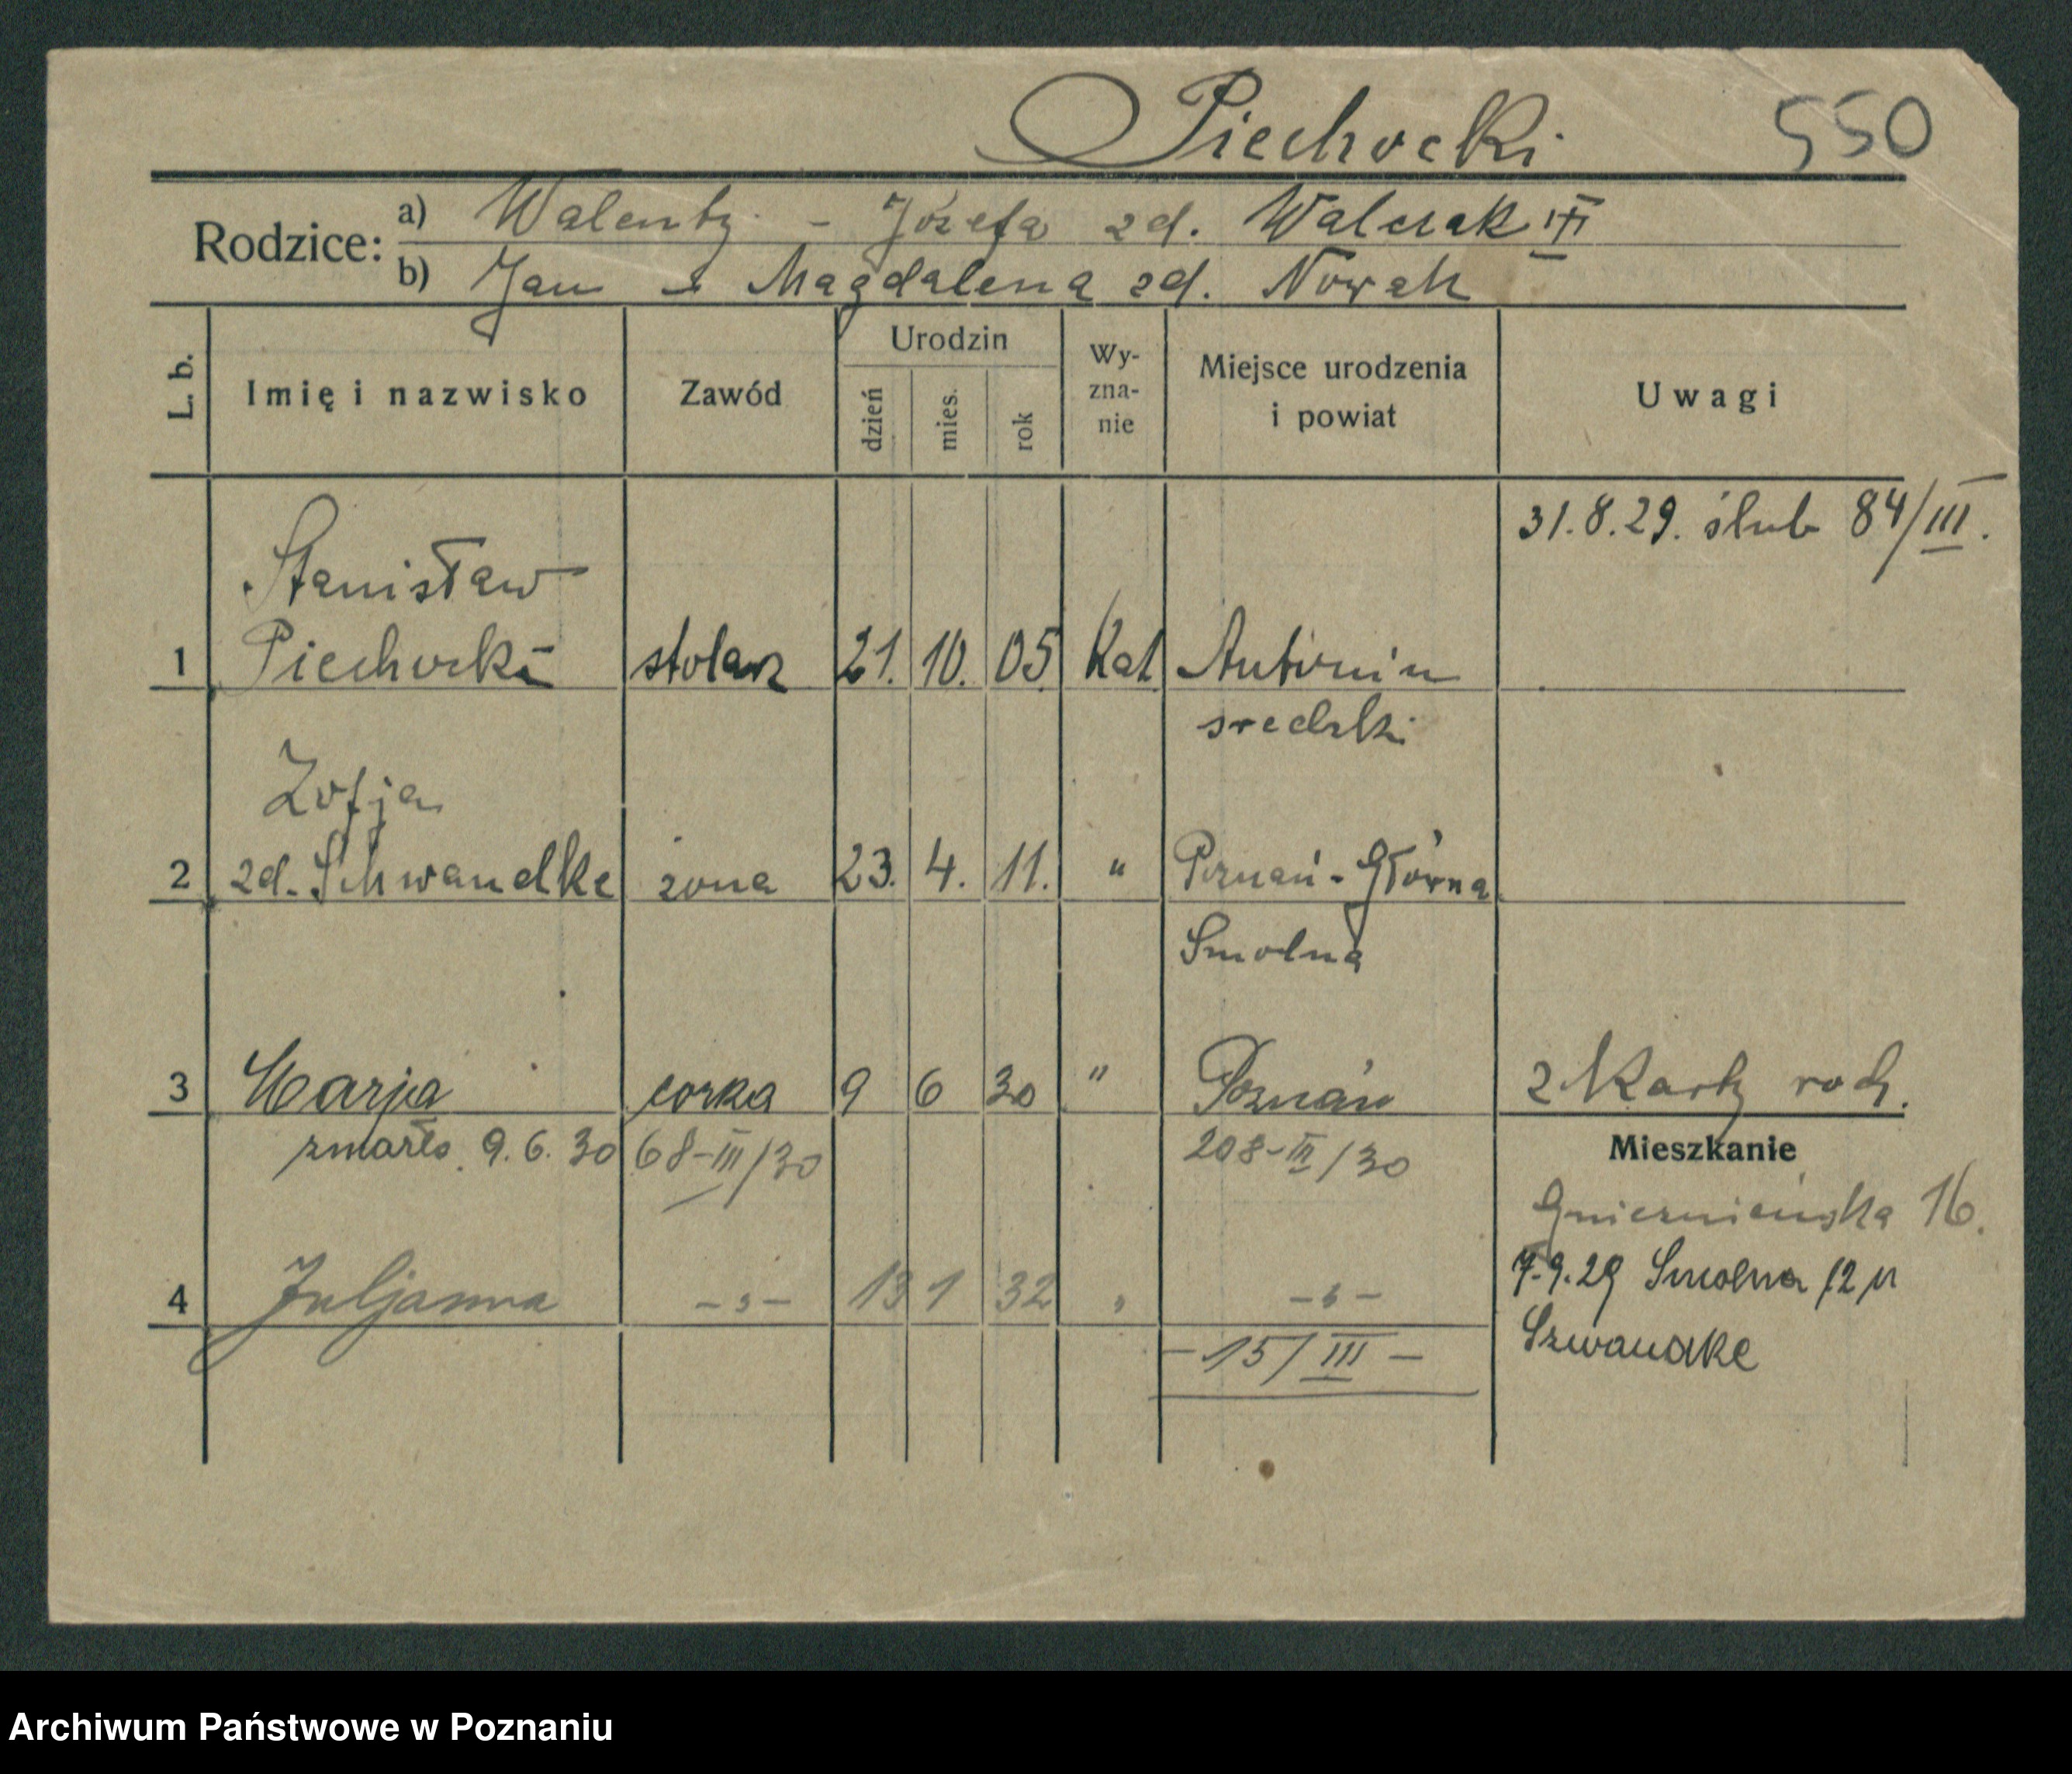 Piechocki 550
Rodzice: a) Walenty - Józefa zd. Walczak III
b) Jan i Magdalena zd. Nowak
L. b. Imię i nazwisko Zawód Urodzin dzień mies. rok Wy-zna-nie Miejsce urodzenia i powiat Uwagi
31.8.29. ślub 84/III.
Stanisław
1 Piechocki stolarz 21. 10. 05 Kat. Antonin
sredzki
Zofja
2 zd. Schwandke żona 23. 4. 11. " Poznań-Główna
Smolna
3 Marja corka 9 6 30 " Poznań 2 Karty rod.
zmarło. 9.6.30 68-III/30 208-III/30
Mieszkanie
Gnieznieńska 16.
7.9.29 Smolna 12
4 Juljanna -„- 13 1 32 „ -„-
Szwandke
-15/III-
Archiwum Państwowe w Poznaniu